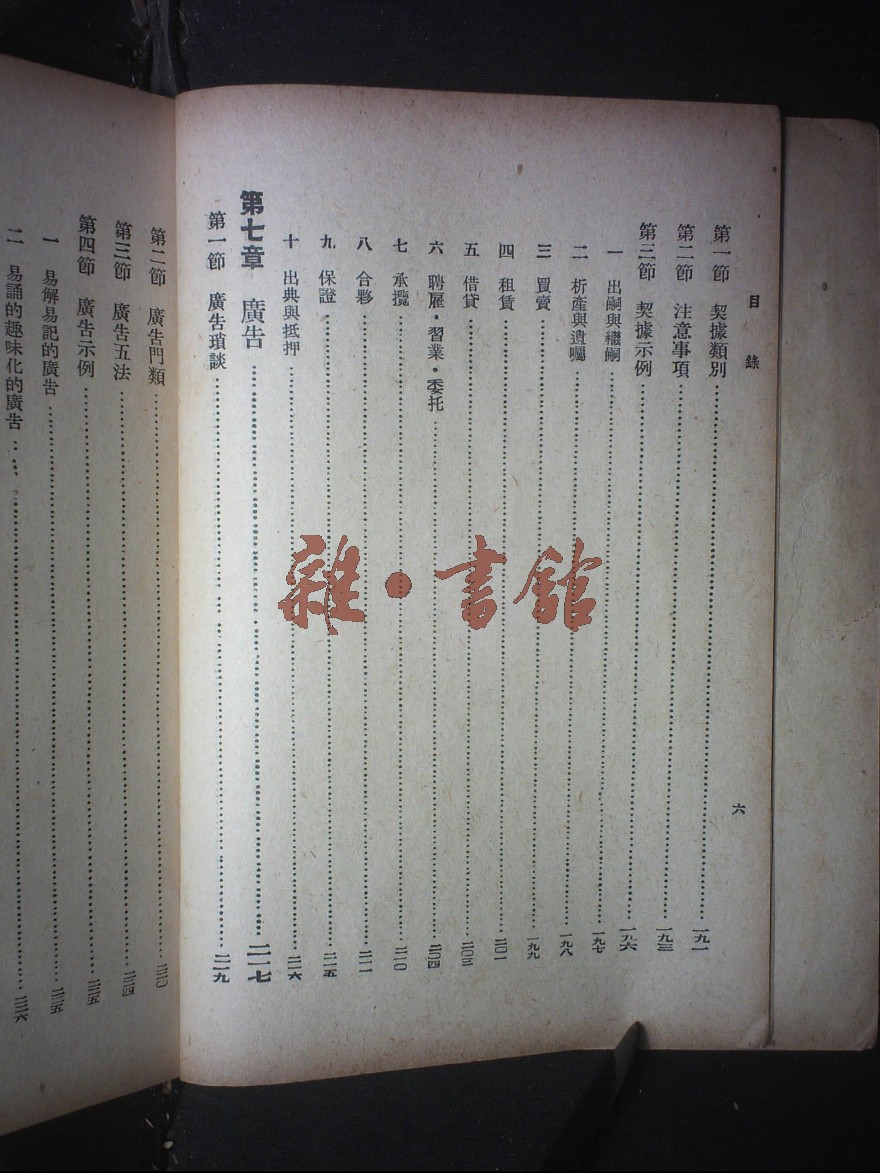 目錄
六
第一節 契據類別 一九一
第二節 注意事項 一九三
第三節 契據示例 一九六
一 出嗣與繼嗣 一九七
二 析產與遺囑 一九八
三 買賣 一九九
四 租賃 二〇一
五 借貸 二〇三
六 聘雇·習業·委托 二〇四
七 承攬 二一〇
八 合夥 二一一
九 保證 二一五
十 出典與抵押 二一六
第七章 廣告 二一七
第一節 廣告瑣談 二一九
第二節 廣告門類
第三節 廣告五法
第四節 廣告示例
一 易解易記的廣告
二 易誦的趣味化的廣告
雜·書館